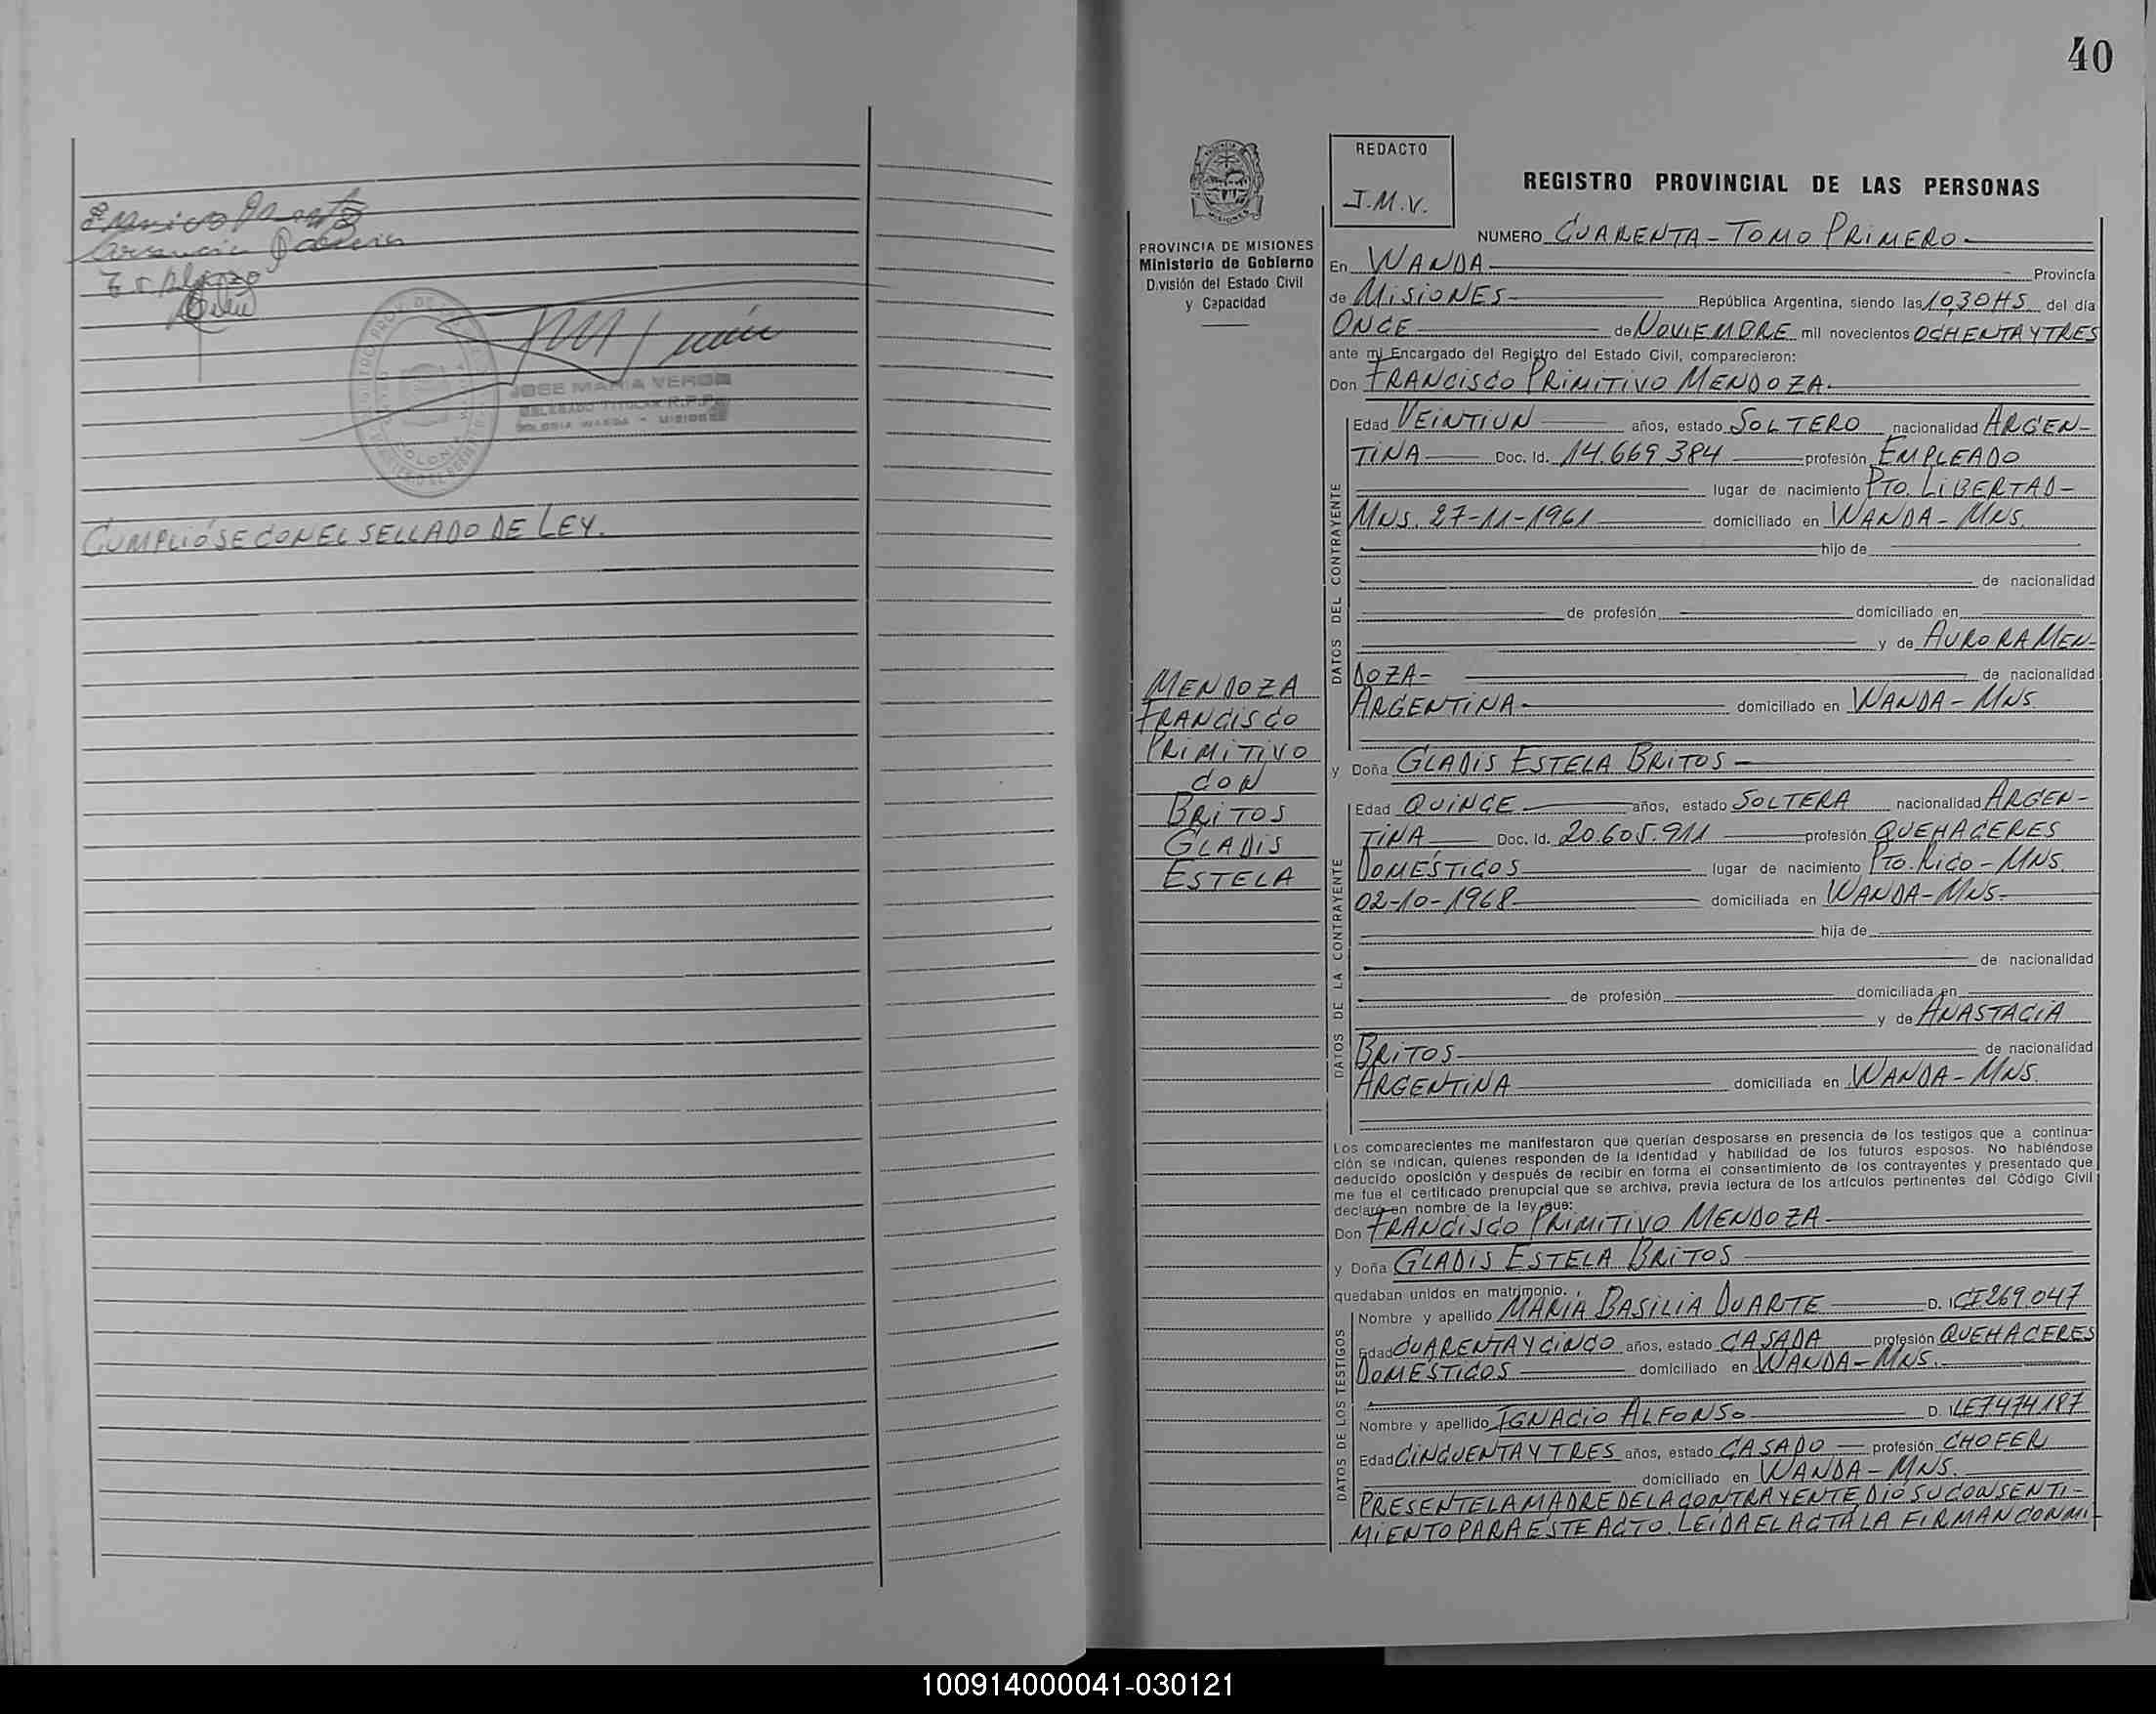 JOSE MARIA VERON
DELEGADO TITULAR R.P.P.
COLONIA WANDA - MISIONES
CUMPLIÓSE CON EL SELLADO DE LEY.
40
REDACTO
J.M.V.
PROVINCIA DE MISIONES
Ministerio de Gobierno
División del Estado Civil
y Capacidad
MENDOZA
FRANCISCO
PRIMITIVO
CON
BRITOS
GLADIS
ESTELA
REGISTRO PROVINCIAL DE LAS PERSONAS
NUMERO CUARENTA - TOMO PRIMERO
En WANDA Provincia
de MISIONES República Argentina, siendo las 10,30 HS. del día
ONCE de NOVIEMBRE mil novecientos OCHENTA Y TRES
ante mi Encargado del Registro del Estado Civil, comparecieron:
Don FRANCISCO PRIMITIVO MENDOZA
DATOS DEL CONTRAYENTE
Edad VEINTIUN años, estado SOLTERO nacionalidad ARGEN-
TINA Doc. Id. 14.669.384 profesión EMPLEADO
lugar de nacimiento PTO. LIBERTAD-
MNS. 27-11-1961 domiciliado en WANDA - MNS.
hijo de
de nacionalidad
de profesión domiciliado en
y de AURORA MEN-
DOZA- de nacionalidad
ARGENTINA domiciliado en WANDA - MNS.
y Doña GLADIS ESTELA BRITOS
DATOS DE LA CONTRAYENTE
Edad QUINCE años, estado SOLTERA nacionalidad ARGEN-
TINA Doc. Id. 20.605.911 profesión QUEHACERES
DOMÉSTICOS lugar de nacimiento PTO. RICO - MNS.
02-10-1968 domiciliada en WANDA - MNS-
hija de
de nacionalidad
de profesión domiciliada en
y de ANASTACIA
BRITOS de nacionalidad
ARGENTINA domiciliada en WANDA - MNS.
Los comparecientes me manifestaron que querían desposarse en presencia de los testigos que a continua-
ción se indican, quienes responden de la identidad y habilidad de los futuros esposos. No habiéndose
deducido oposición y después de recibir en forma el consentimiento de los contrayentes y presentado que
me fue el certificado prenupcial que se archiva, previa lectura de los artículos pertinentes del Código Civil
declaré en nombre de la ley que:
Don FRANCISCO PRIMITIVO MENDOZA
y Doña GLADIS ESTELA BRITOS
quedaban unidos en matrimonio.
DATOS DE LOS TESTIGOS
Nombre y apellido MARÍA BASILIA DUARTE D. I. CI 269.047
Edad CUARENTA Y CINCO años, estado CASADA profesión QUEHACERES
DOMÉSTICOS domiciliado en WANDA - MNS.
Nombre y apellido IGNACIO ALFONSO D. I. LE 7.474.187
Edad CINCUENTA Y TRES años, estado CASADO profesión CHOFER
domiciliado en WANDA - MNS.
PRESENTE LA MADRE DE LA CONTRAYENTE DIÓ SU CONSENTI-
MIENTO PARA ESTE ACTO. LEIDA EL ACTA LA FIRMAN CON MI-
100914000041-030121